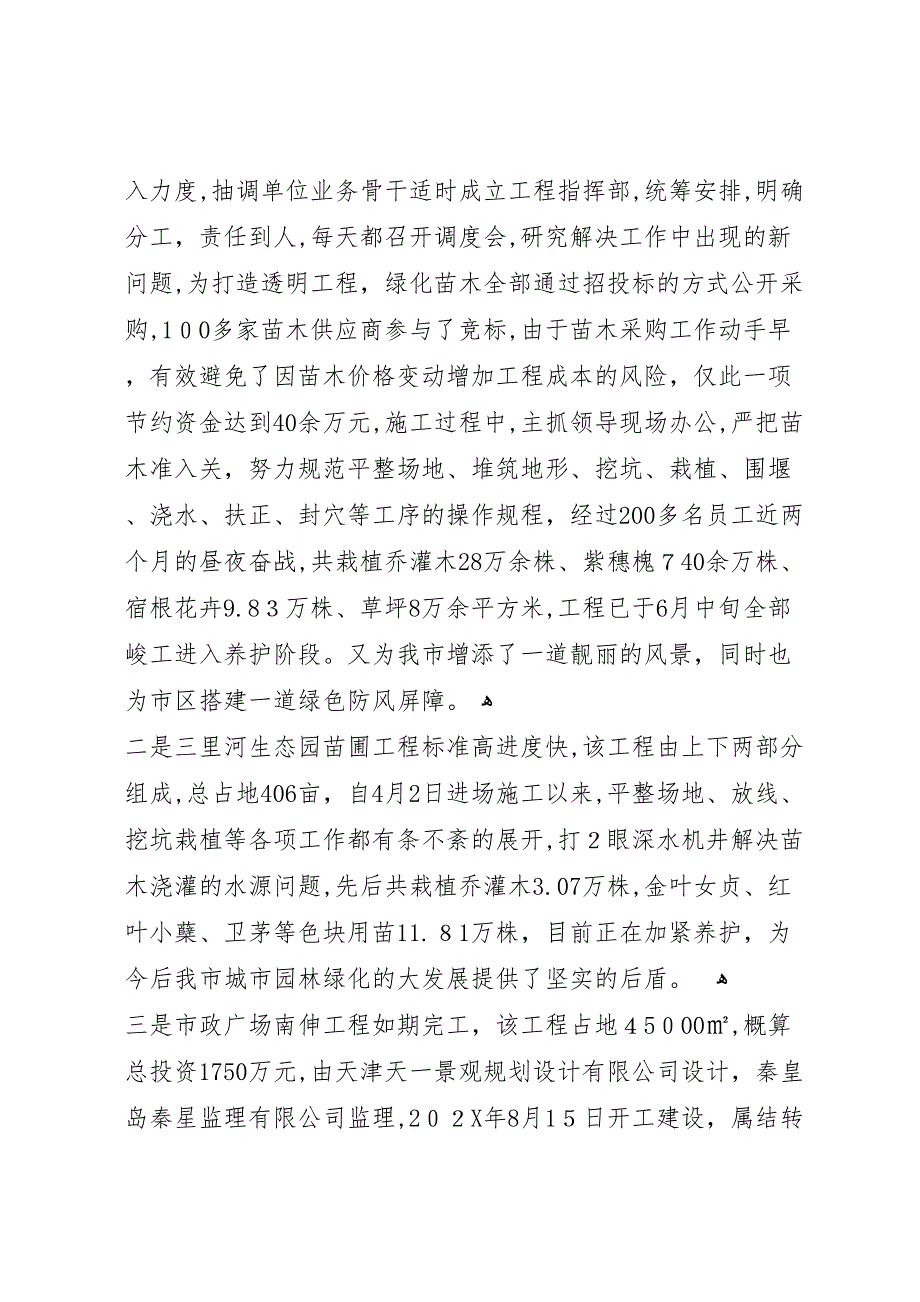 入力度,抽调单位业务骨干适时成立工程指挥部,统筹安排,明确
分工，责任到人,每天都召开调度会,研究解决工作中出现的新
问题,为打造透明工程，绿化苗木全部通过招投标的方式公开采
购,１００多家苗木供应商参与了竞标,由于苗木采购工作动手早
，有效避免了因苗木价格变动增加工程成本的风险，仅此一项
节约资金达到40余万元,施工过程中,主抓领导现场办公,严把苗
木准入关，努力规范平整场地、堆筑地形、挖坑、栽植、围堰
、浇水、扶正、封穴等工序的操作规程，经过200多名员工近两
个月的昼夜奋战,共栽植乔灌木28万余株、紫穗槐７40余万株、
宿根花卉9.８３万株、草坪8万余平方米,工程已于6月中旬全部
峻工进入养护阶段。又为我市增添了一道靓丽的风景，同时也
为市区搭建一道绿色防风屏障。 ﻫ
二是三里河生态园苗圃工程标准高进度快,该工程由上下两部分
组成,总占地406亩，自4月2日进场施工以来,平整场地、放线、
挖坑栽植等各项工作都有条不紊的展开,打２眼深水机井解决苗
木浇灌的水源问题,先后共栽植乔灌木3.07万株,金叶女贞、红
叶小蘖、卫茅等色块用苗11.８1万株，目前正在加紧养护，为
今后我市城市园林绿化的大发展提供了坚实的后盾。 ﻫ
三是市政广场南伸工程如期完工，该工程占地４5０00㎡,概算
总投资1750万元,由天津天一景观规划设计有限公司设计，秦皇
岛秦星监理有限公司监理,２０２X年8月1５日开工建设，属结转